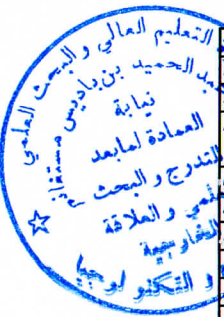 التعليم العالي والبحث العلمي
عبد الحميد بن باديس مستغانم
نيابة
العمادة لما بعد
التدرج و البحث
العلمي و العلاقة
الخارجية
و التكنولوجيا